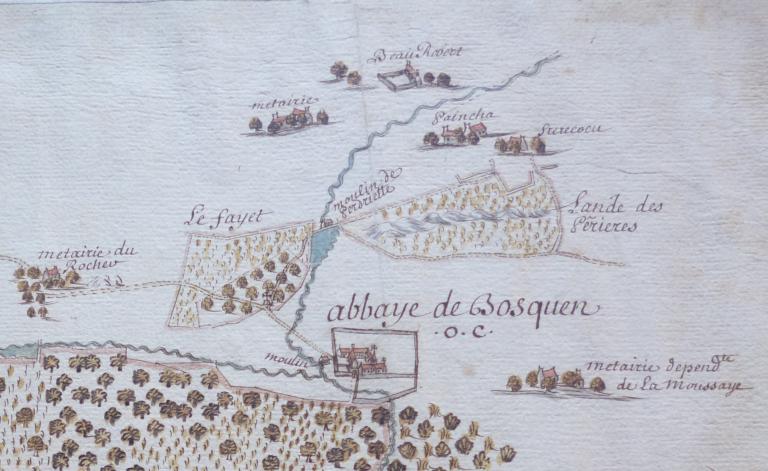 Beau Robert
metairie
Paincha
moulin de
Perdriette
Le fayet
Lande des
Pẽrieres
metairie du
Rocher
abbaye de Bosquen
.o.c.
moulin
metairie depend.te
de La Moussaye